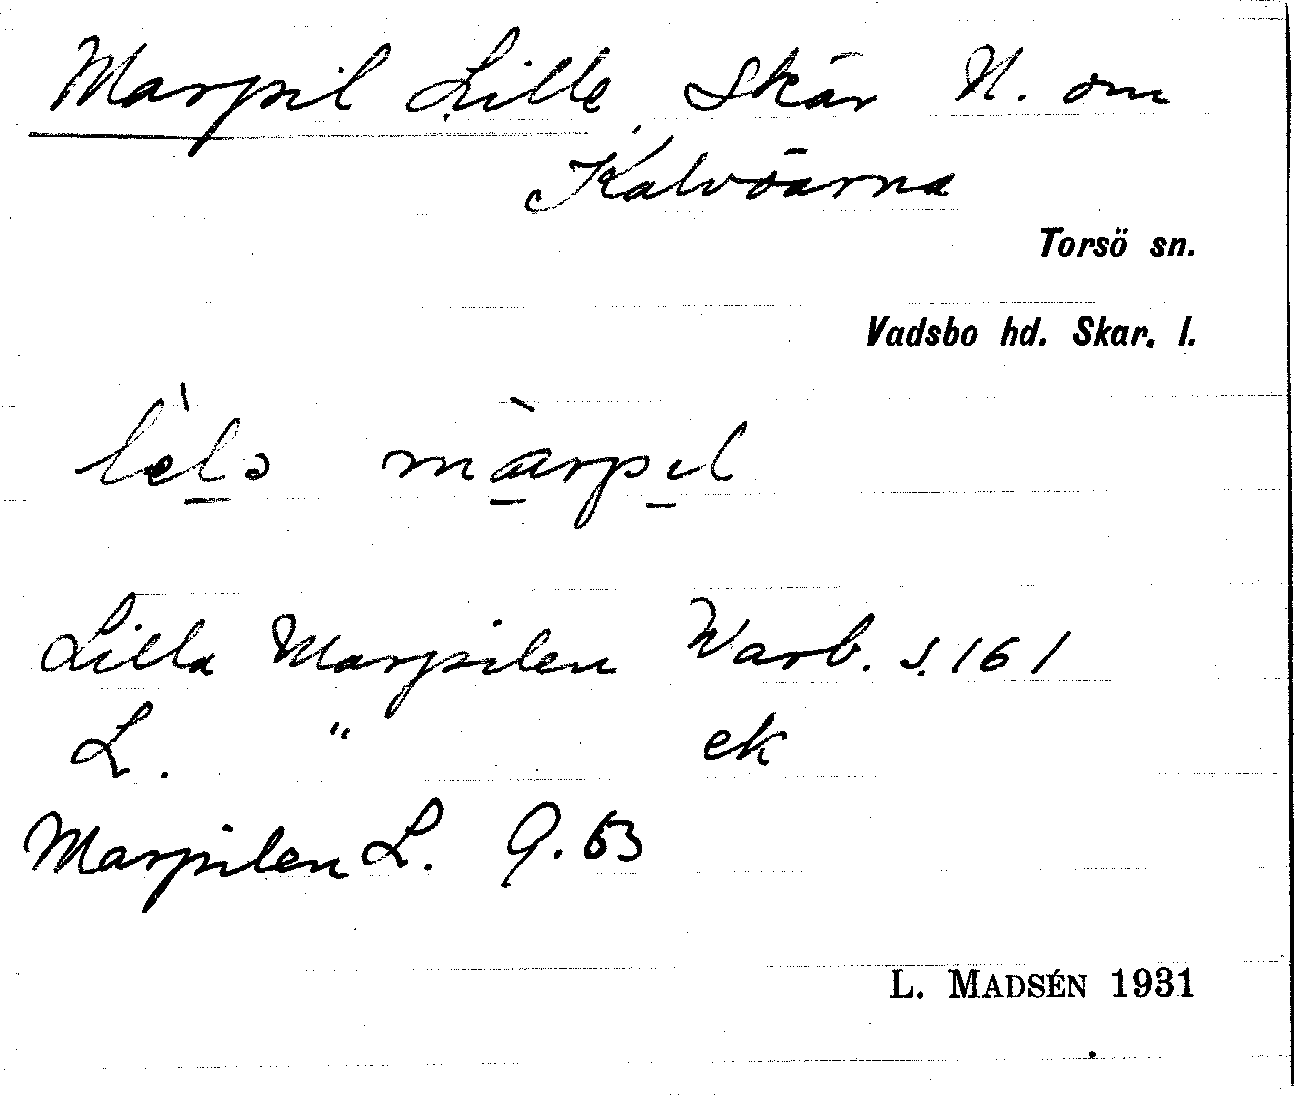 Marpil Lille, Skär N. om
Kalvöarna
Torsö sn.
Vadsbo hd. Skar. l.
màrpıl
Lilla Marpilen Warb. s. 161
L. " ek
Marpilen L. G. 63
L. MADSÉN 1931